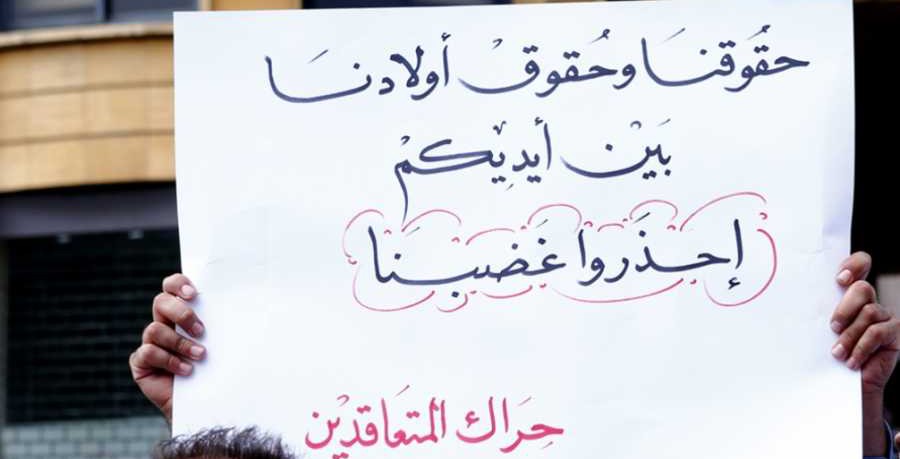 حقُوقنَا وحُقوقْ أولادنَا
بَيْن أيدِيْكمْ
إحذَروا غَضبنَا
حِرَاك المتعَاقدِيْن